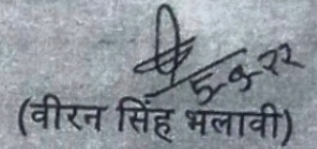 5-9-22
(वीरन सिंह भलावी)